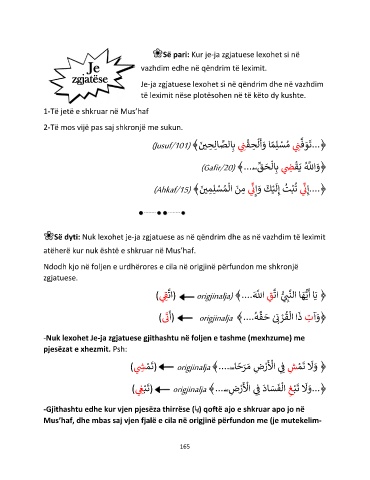 ❀Së pari: Kur je-ja zgjatuese lexohet si në
vazhdim edhe në qëndrim të leximit.
Je
zgjatëse
Je-ja zgjatuese lexohet si në qëndrim dhe në vazhdim
të leximit nëse plotësohen në të këto dy kushte.
1-Të jetë e shkruar në Mus’haf
2-Të mos vijë pas saj shkronjë me sukun.
﴿...تَوَفَّنِي مُسْلِمًا وَأَلْحِقْنِي بِالصَّالِحِينَ﴾ (Jusuf/101)
﴿وَاللَّهُ يَقْضِي بِالْحَقِّ....﴾ (Gafir/20)
﴿....إِنِّي تُبْتُ إِلَيْكَ وَإِنِّي مِنَ الْمُسْلِمِينَ﴾ (Ahkaf/15)
❀Së dyti: Nuk lexohet je-ja zgjatuese as në qëndrim dhe as në vazhdim të leximit
atëherë kur nuk është e shkruar në Mus’haf.
Ndodh kjo në foljen e urdhërores e cila në origjinë përfundon me shkronjë
zgjatuese.
﴿ يَا أَيُّهَا النَّبِيُّ اتَّقِ اللَّهَ....﴾ origjinalja) (اتَّقِي)
﴿وَآتِ ذَا الْقُرْبَىٰ حَقَّهُ....﴾ origjinalja (آتِي)
-Nuk lexohet Je-ja zgjatuese gjithashtu në foljen e tashme (mexhzume) me
pjesëzat e xhezmit. Psh:
﴿ وَلَا تَمْشِ فِي الْأَرْضِ مَرَحًا....﴾ origjinalja (تَمْشِي)
﴿...وَلَا تَبْغِ الْفَسَادَ فِي الْأَرْضِ....﴾ origjinalja (تَبْغِي)
-Gjithashtu edhe kur vjen pjesëza thirrëse (يا) qoftë ajo e shkruar apo jo në
Mus’haf, dhe mbas saj vjen fjalë e cila në origjinë përfundon me (je mutekelim-
165